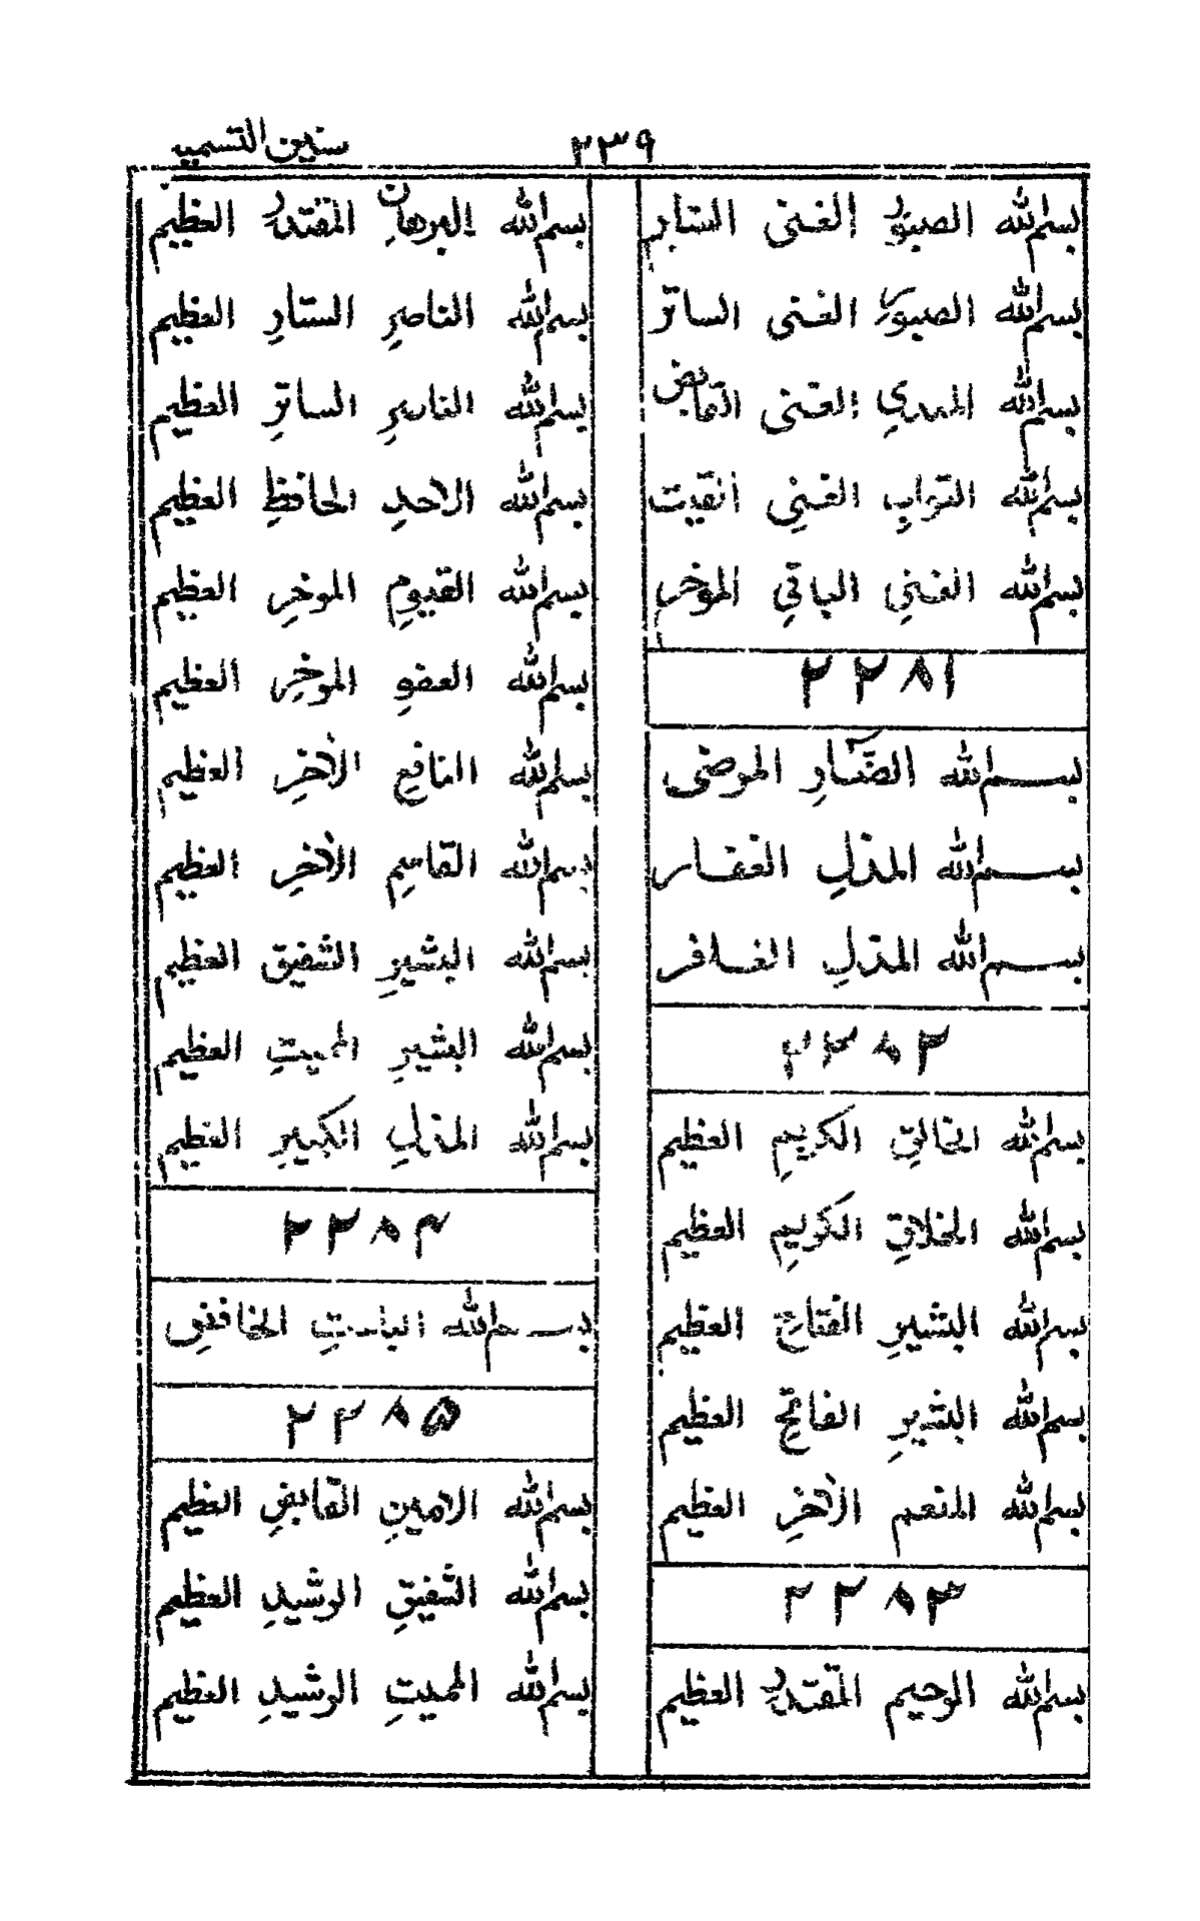 ٢٣٩
سنين التسميد
بسم الله الصبور الغنى الستار
بسم الله الصبور الغنى الساتر
بسم الله المبدي الغنى القابض
بسم الله التواب الغني المقيت
بسم الله الغني الباقي الموخر
٢٢٨١
بسم الله الضار الموضى
بسم الله المذل الغفار
بسم الله المذل الغافر
٢٢٨٢
بسم الله الخالق الكريم العظيم
بسم الله الخلاق الكريم العظيم
بسم الله البشير الفتاح العظيم
بسم الله البشير الفاتح العظيم
بسم الله المنعم الآخر العظيم
٢٢٨٣
بسم الله الرحيم المقتدر العظيم
بسم الله البرهان المقتدر العظيم
بسم الله الناصر الستار العظيم
بسم الله الناصر الساتر العظيم
بسم الله الاحد الحافظ العظيم
بسم الله القيوم الموخر العظيم
بسم الله العفو الموخر العظيم
بسم الله النافع الآخر العظيم
بسم الله القاسم الآخر العظيم
بسم الله البشير الشفيق العظيم
بسم الله البشير المميت العظيم
بسم الله المذل الكبير العظيم
٢٢٨٤
بسم الله الباعث الخافض
٢٢٨٥
بسم الله الامين القابض العظيم
بسم الله الشفيق الرشيد العظيم
بسم الله المميت الرشيد العظيم